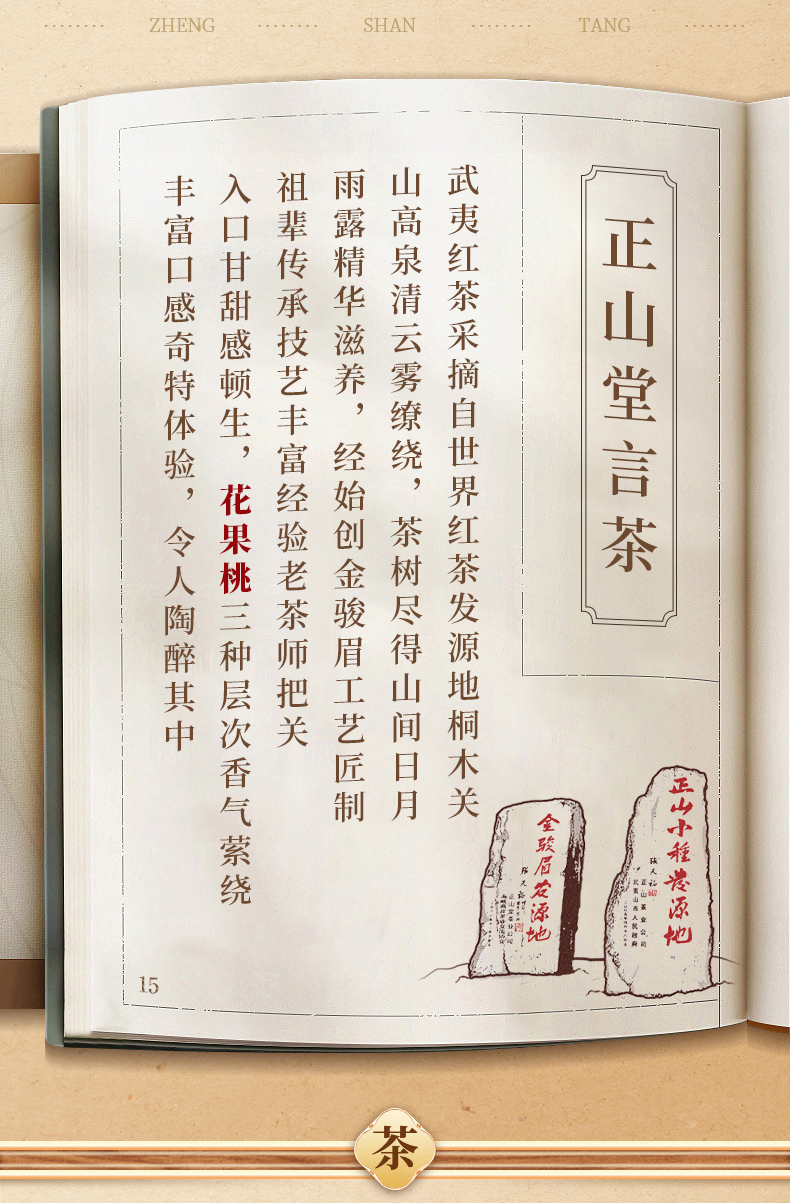 ZHENG SHAN TANG
正山堂言茶
武夷红茶采摘自世界红茶发源地桐木关
山高泉清云雾缭绕，茶树尽得山间日月
雨露精华滋养，经始创金骏眉工艺匠制
祖辈传承技艺丰富经验老茶师把关
入口甘甜感顿生，花果桃三种层次香气萦绕
丰富口感奇特体验，令人陶醉其中
正山小種发源地
张天福
正山茶业公司
武夷山市人民政府
金骏眉发源地
张天福
正山堂茶业公司
15
茶